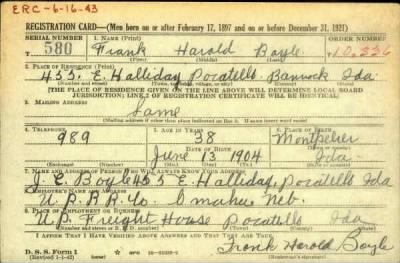 ERC-6-16-43
REGISTRATION CARD—(Men born on or after February 17, 1897 and on or before December 31, 1921)
SERIAL NUMBER 1. NAME (Print) ORDER NUMBER
580 Frank Harold Boyle 10,336
(First) (Middle) (Last)
2. PLACE OF RESIDENCE (Print)
455 E. Halliday Pocatello Bannock Ida.
(Number and street) (Town, township, village, or city) (County) (State)
[THE PLACE OF RESIDENCE GIVEN ON THE LINE ABOVE WILL DETERMINE LOCAL BOARD
JURISDICTION; LINE 2 OF REGISTRATION CERTIFICATE WILL BE IDENTICAL]
3. MAILING ADDRESS
Same
(Mailing address if other than place indicated on line 2. If same insert word same)
4. TELEPHONE 5. AGE IN YEARS 6. PLACE OF BIRTH
989 38 Montpelier
DATE OF BIRTH
June 13 1904 Ida
(Exchange) (Number) (Mo.) (Day) (Yr.) (State or country)
7. NAME AND ADDRESS OF PERSON WHO WILL ALWAYS KNOW YOUR ADDRESS
J. E. Boyle 455 E. Halliday, Pocatello Ida
8. EMPLOYER'S NAME AND ADDRESS
U. P. R. R. Co. Omaha Neb.
9. PLACE OF EMPLOYMENT OR BUSINESS
U. P. Freight House Pocatello Ida
(Number and street or R. F. D. number) (Town) (County) (State)
I AFFIRM THAT I HAVE VERIFIED ABOVE ANSWERS AND THAT THEY ARE TRUE.
D. S. S. Form 1
(Revised 1-1-42) Frank Harold Boyle